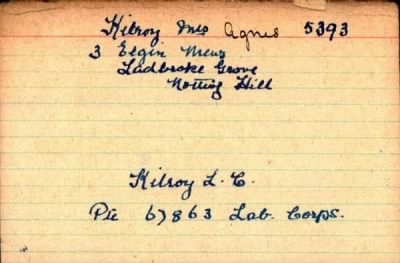 Kilroy Mrs Agnes 5393
3 Elgin Mews
Ladbroke Grove
Notting Hill
Kilroy L. C.
Pte 67863 Lab. Corps.